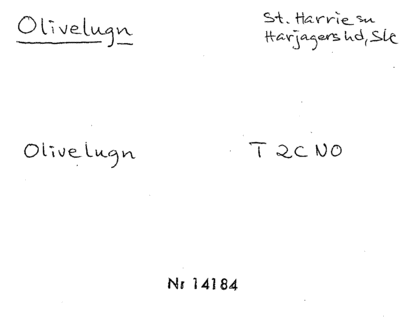 Olivelugn
St. Harrie sn
Harjagers hd, Sk
Olivelugn
T 2C NO
Nr 14184